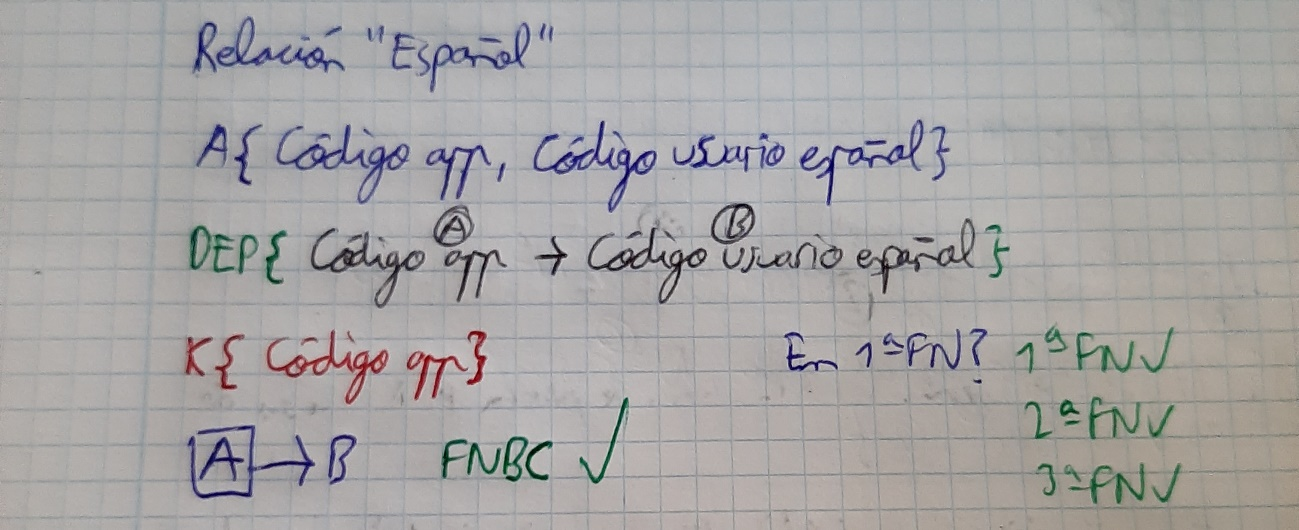 Relación "Español"
A{ Código app, Código usuario español}
DEP{ Código app → Código usuario español}
A B
K{ Código app} En 1ªFN? 1ªFN✓
2ªFN✓
A → B FNBC ✓
3ªFN✓